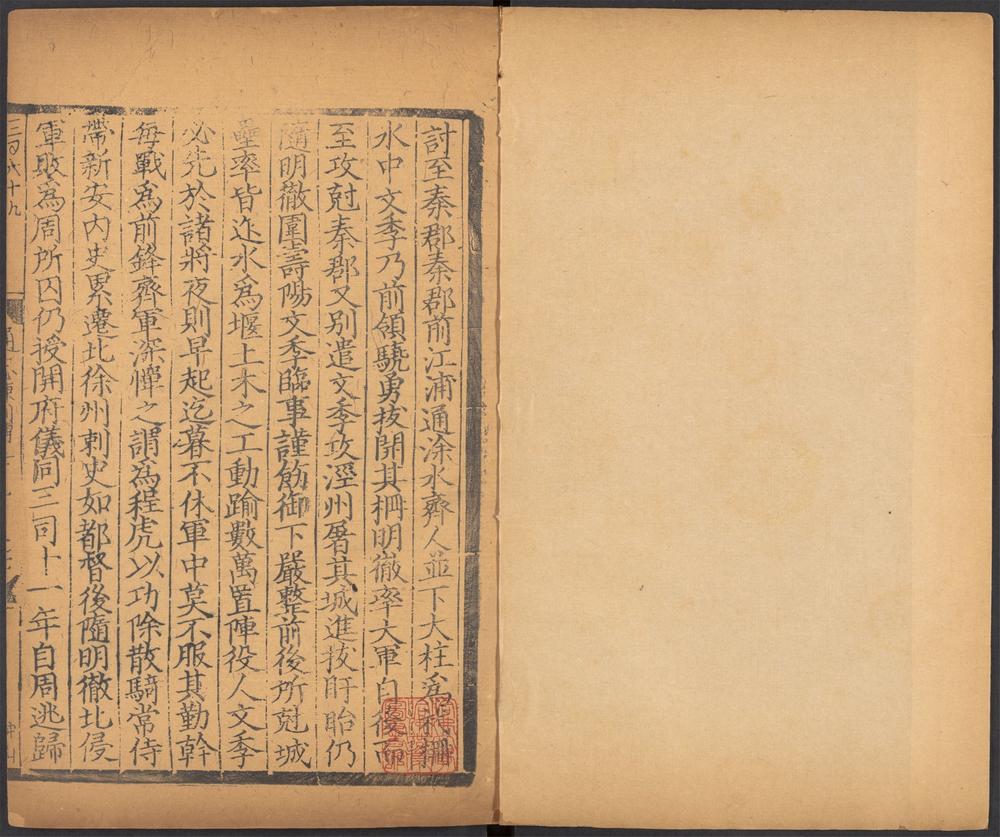 討至秦郡秦郡前江浦通涂水齊人並下大柱為杙柵
水中文季乃前領驍勇拔開其柵明徹率大軍自後而
至攻尅秦郡又别遣文季攻涇州屠其城進拔盱眙仍
隨明徹圍壽陽文季臨事謹飭御下嚴整前後所尅城
壘率皆迮水爲堰土木之工動踰數萬置陣役人文季
必先於諸將夜則早起迄暮不休軍中莫不服其勤幹
每戰爲前鋒齊軍深憚之謂爲程虎以功除散騎常侍
帶新安内史累遷北徐州刺史如都督後隨明徹北侵
軍敗爲周所囚仍授開府儀同三司十一年自周逃歸